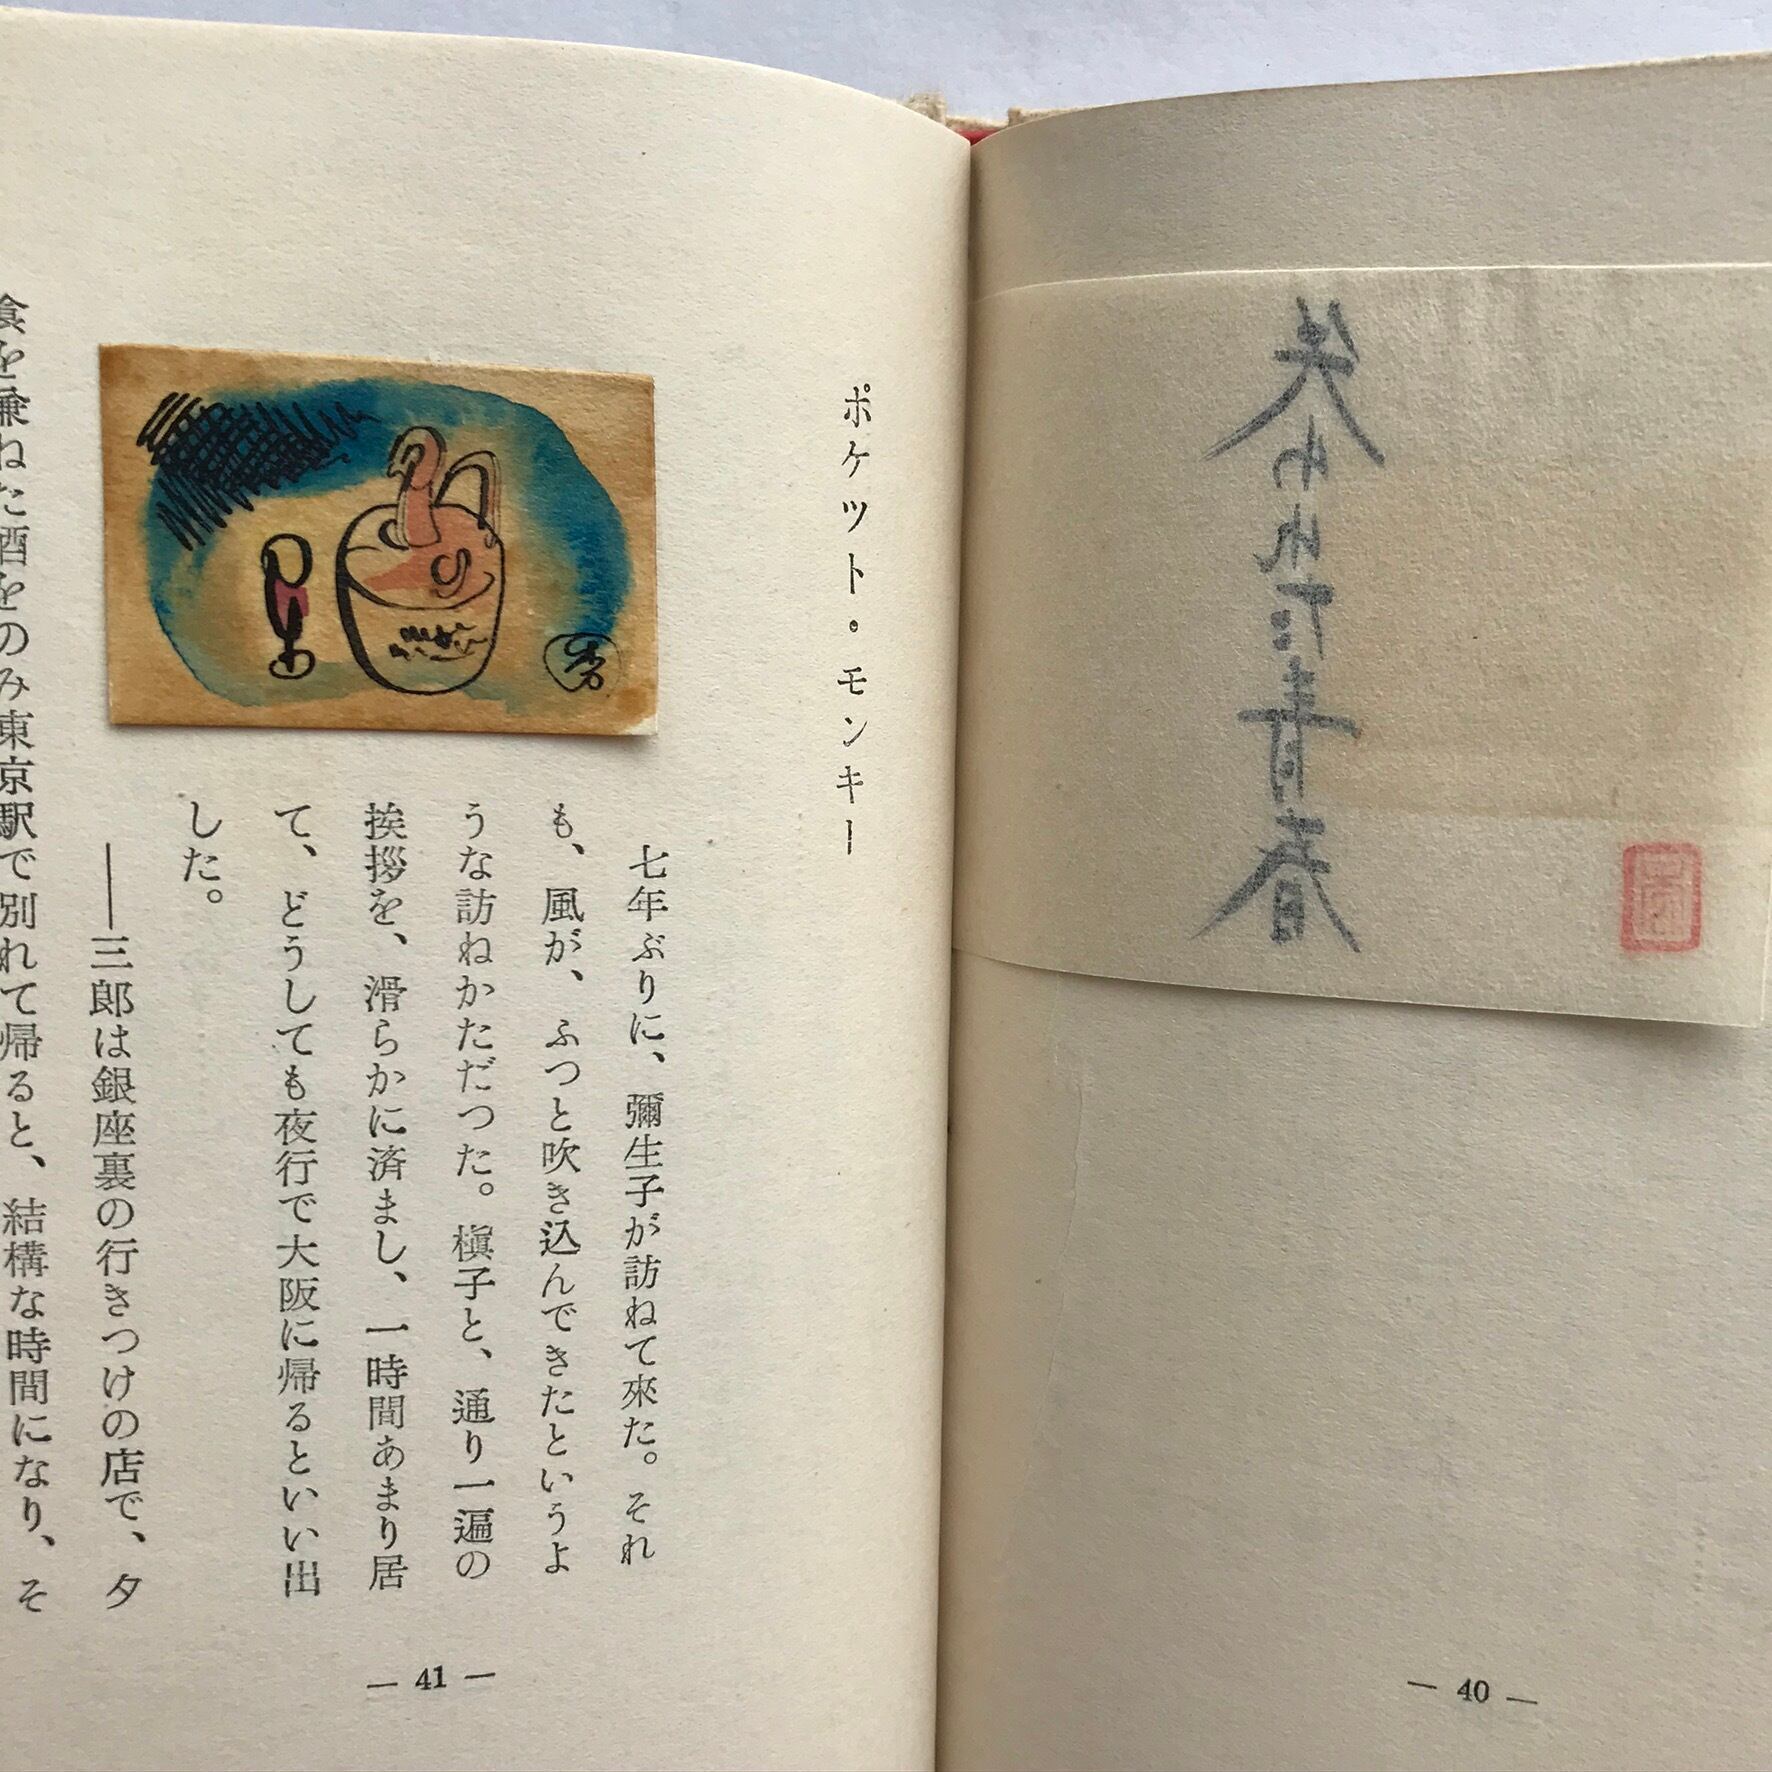 失われた青春
— 40 —
ポケット・モンキー
七年ぶりに、彌生子が訪ねて來た。それ
も、風が、ふつと吹き込んできたというよ
うな訪ねかただつた。槇子と、通り一遍の
挨拶を、滑らかに済まし、一時間あまり居
て、どうしても夜行で大阪に帰るといい出
した。
――三郎は銀座裏の行きつけの店で、夕
食を兼ねた酒をのみ東京駅で別れて帰ると、結構な時間になり、そ
— 41 —